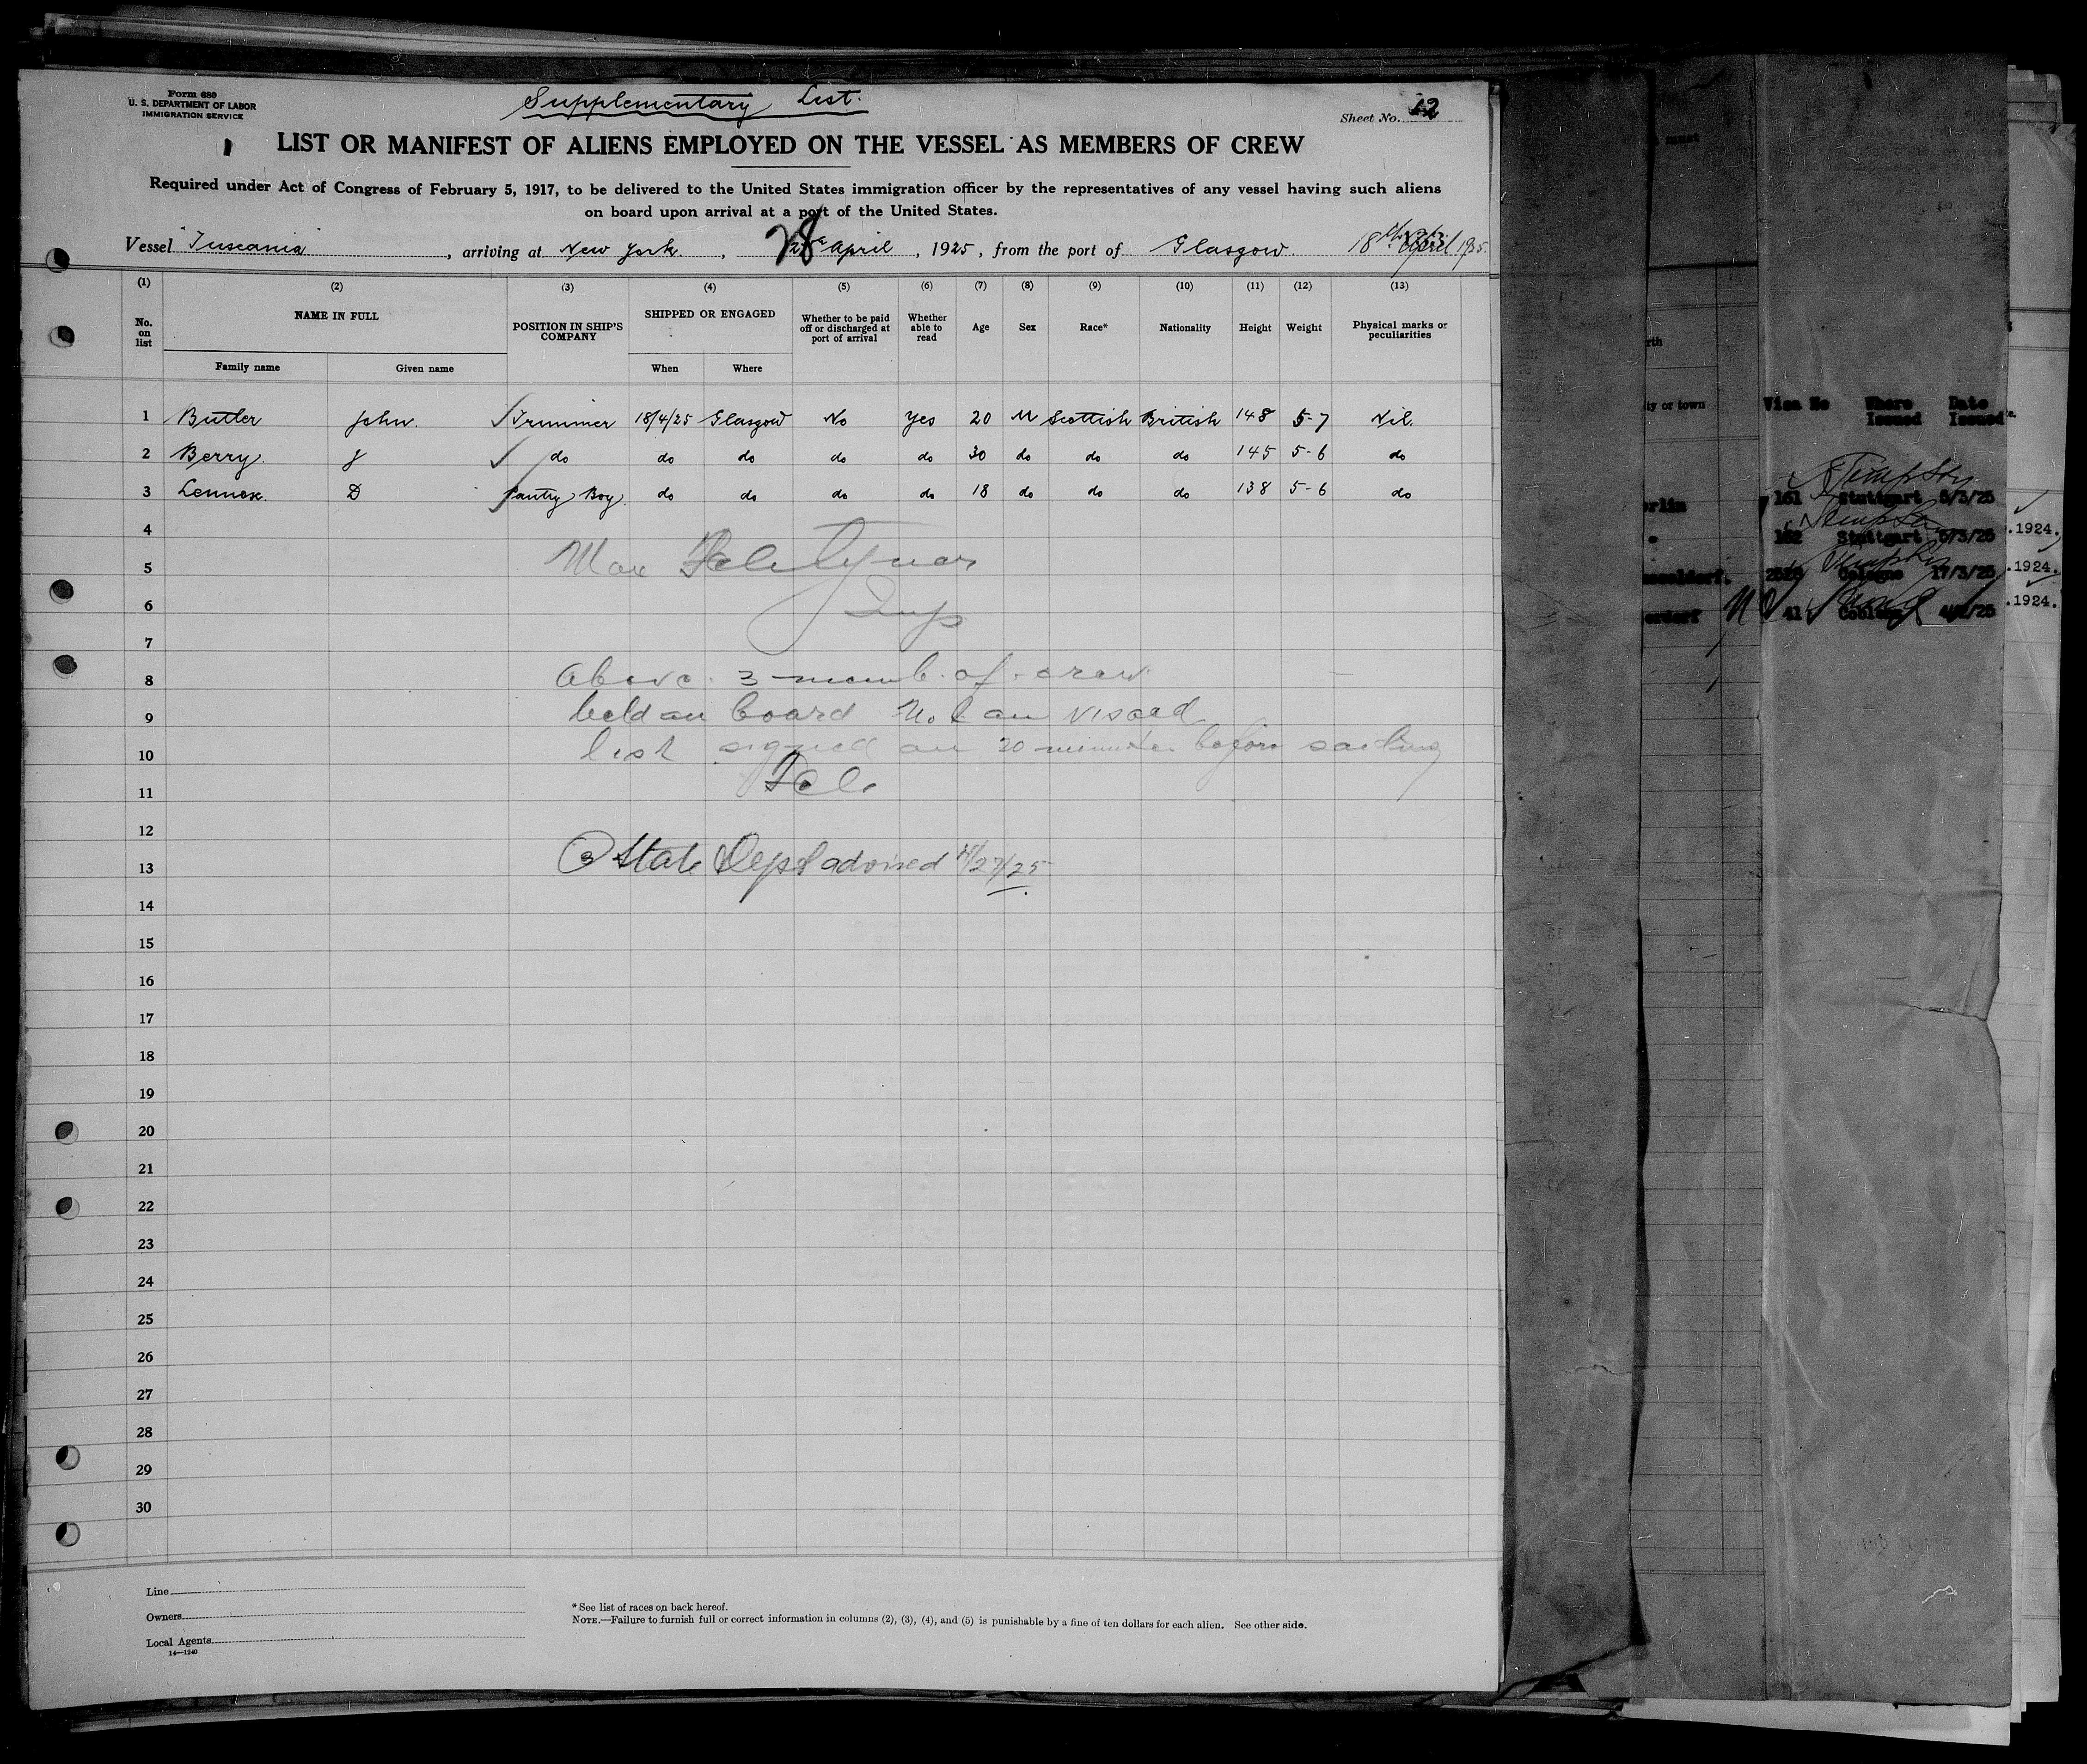 Form 689
U. S. DEPARTMENT OF LABOR
IMMIGRATION SERVICE
Supplementary List.
Sheet No. 12
LIST OR MANIFEST OF ALIENS EMPLOYED ON THE VESSEL AS MEMBERS OF CREW
Required under Act of Congress of February 5, 1917, to be delivered to the United States immigration officer by the representatives of any vessel having such aliens
on board upon arrival at a port of the United States.
Vessel "Tuscania", arriving at New York., 28 April, 1925, from the port of Glasgow. 18th April 1925.
(1) (2) (3) (4) (5) (6) (7) (8) (9) (10) (11) (12) (13)
No. on list NAME IN FULL POSITION IN SHIP'S COMPANY SHIPPED OR ENGAGED Whether to be paid off or discharged at port of arrival Whether able to read Age Sex Race* Nationality Height Weight Physical marks or peculiarities
Family name Given name When Where
1 Butler John. Trimmer 18/4/25 Glasgow No Yes 20 M Scottish British 148 5-7 Nil.
2 Berry. J do do do do do 30 do do do 145 5-6 do
3 Lennox. D Pantry Boy. do do do do 18 do do do 138 5-6 do
4
5
6 Insp
7
8 Above 3 memb. of crew
9 held on board Not on visaed
10 list signed on 20 minutes before sailing
11
12
13 3 State Dept advised 4/27/25
14
15
16
17
18
19
20
21
22
23
24
25
26
27
28
29
30
Line
Owners
Local Agents
14—1240
* See list of races on back hereof.
NOTE.—Failure to furnish full or correct information in columns (2), (3), (4), and (5) is punishable by a fine of ten dollars for each alien. See other side.
must
rth
ty or town
Visa No Where Issued Date Issued
erlin 161 Stuttgart 5/3/25
162 Stuttgart 5/3/25 .1924.
sseldorf. Cologne 17/3/25 .1924.
erdorf 41 .1924.